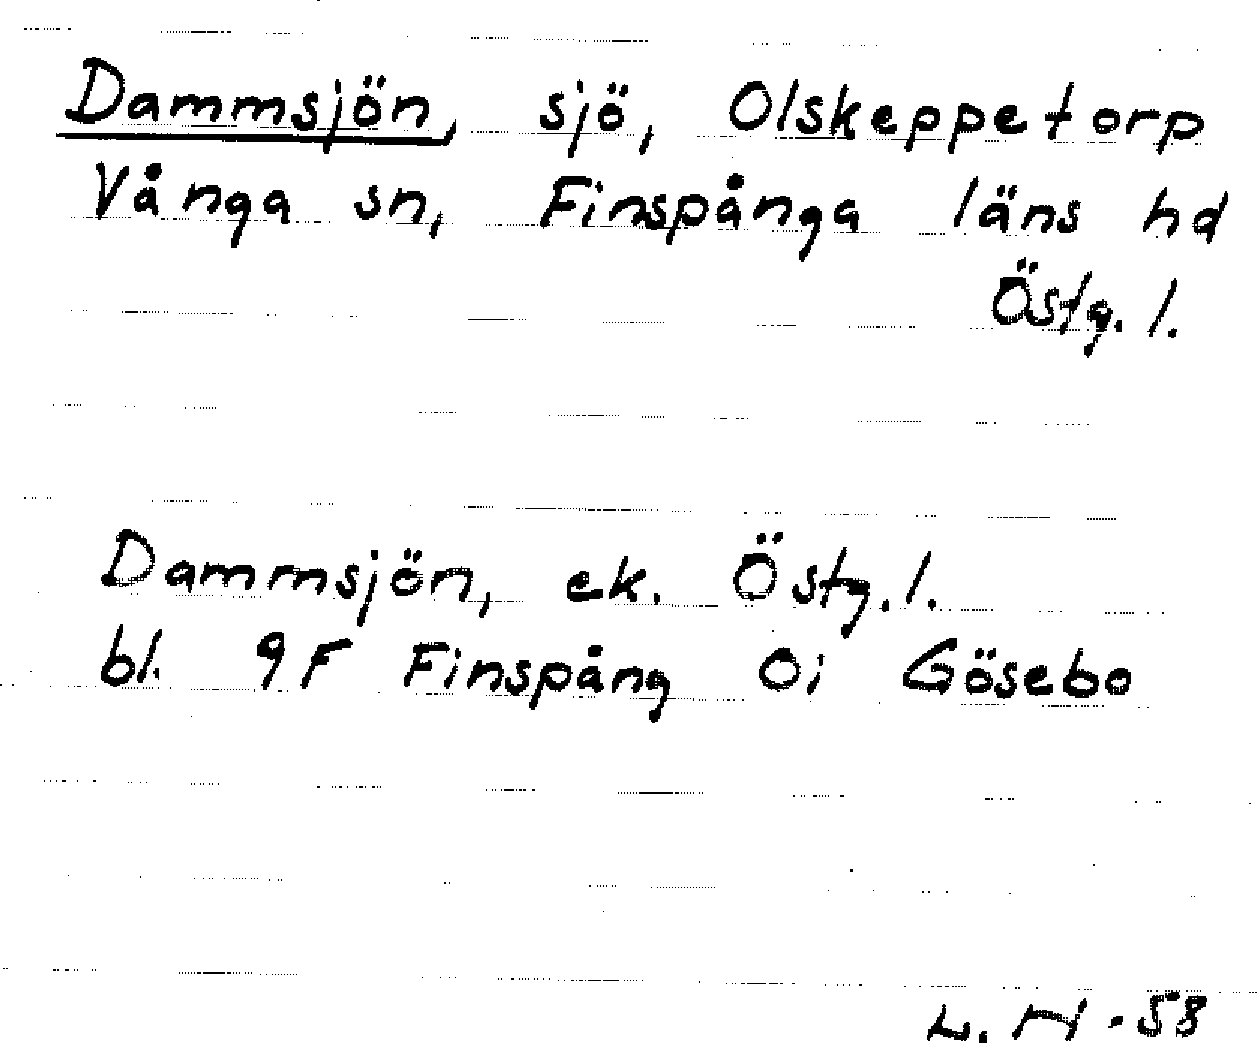 Dammsjön, sjö, Olskeppetorp
Vånga sn, Finspånga läns hd
Östg. l.
Dammsjön, ek. Östg. l.
bl. 9F Finspång 0i Gösebo
L. H -58